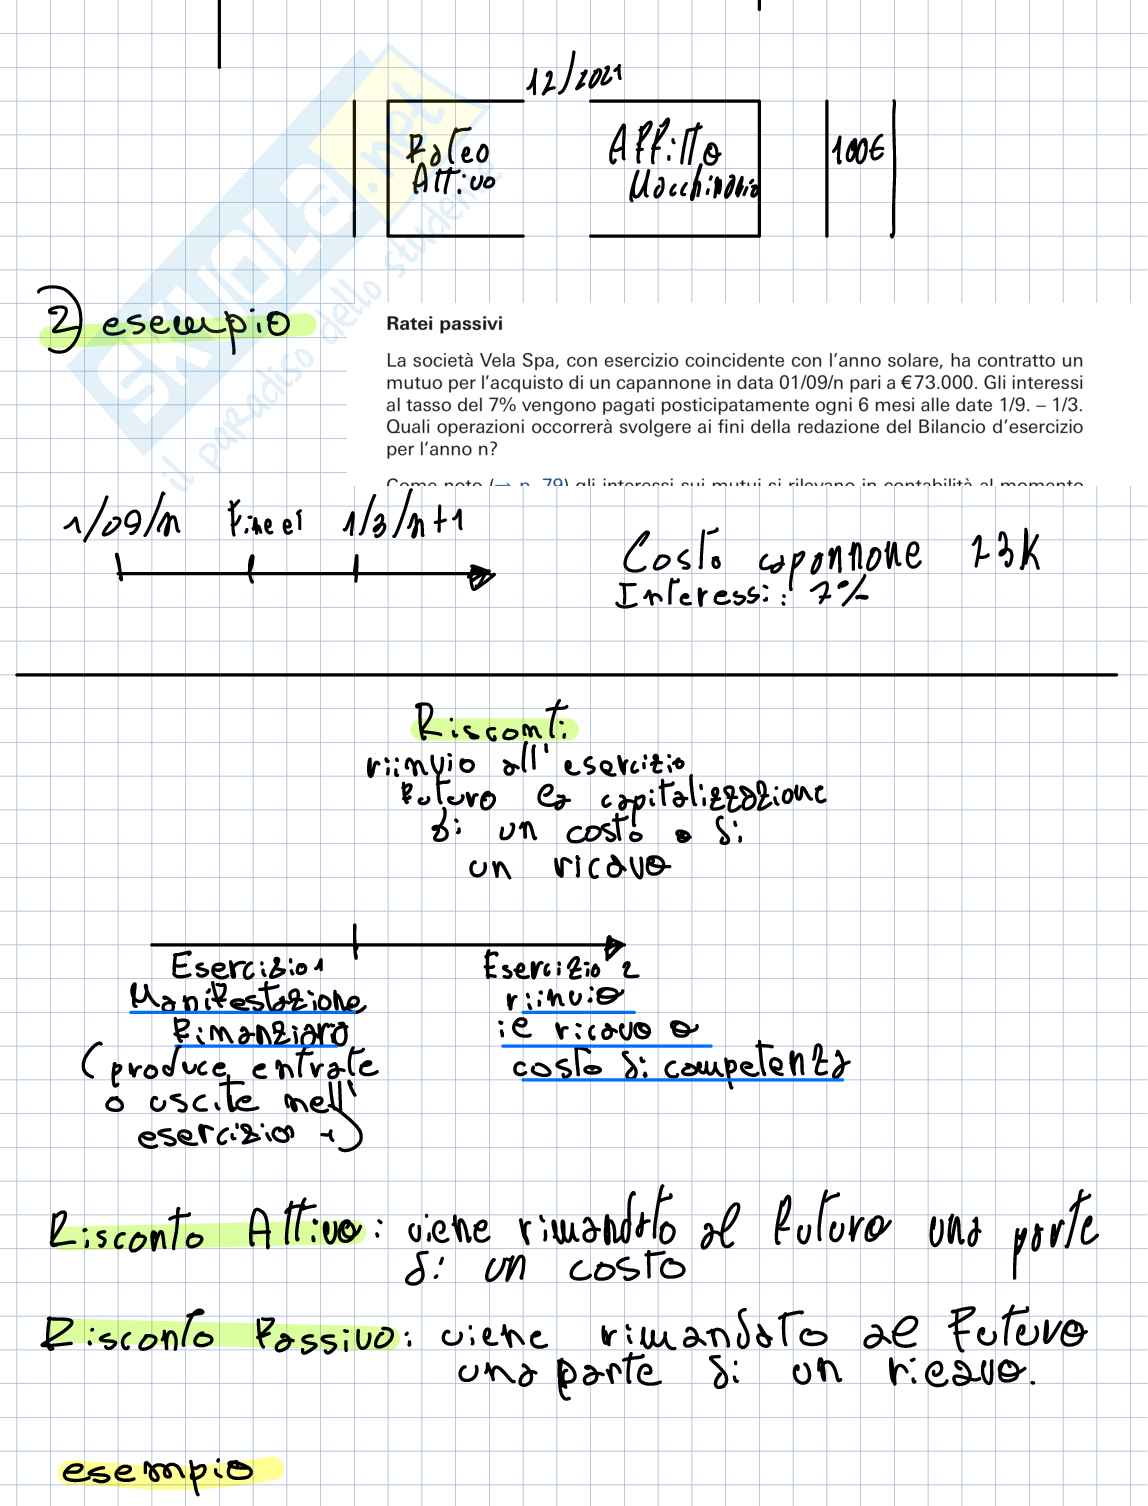 12/2021
Rateo Attivo
Affitto Macchinario
100€
2) esempio
Ratei passivi
La società Vela Spa, con esercizio coincidente con l'anno solare, ha contratto un
mutuo per l'acquisto di un capannone in data 01/09/n pari a € 73.000. Gli interessi
al tasso del 7% vengono pagati posticipatamente ogni 6 mesi alle date 1/9. – 1/3.
Quali operazioni occorrerà svolgere ai fini della redazione del Bilancio d'esercizio
per l'anno n?
Come noto (→ p. 79) gli interessi sui mutui si rilevano in contabilità al momento
1/09/n Fine es 1/3/n+1
Costo capannone 73K
Interessi: 7%
Risconti
riinvio all'esercizio
futuro la capitalizzazione
di un costo o di
un ricavo
Esercizio 1
Manifestazione
Finanziaro
(produce entrate
o uscite nell'
esercizio 1)
Esercizio 2
riinvio
il ricavo o
costo di competenza
Risconto Attivo: viene rimandato al futuro una parte
di un costo
Risconto Passivo: viene rimandato al futuro
una parte di un ricavo.
esempio
SKUOLA.net
il paradiso dello studente